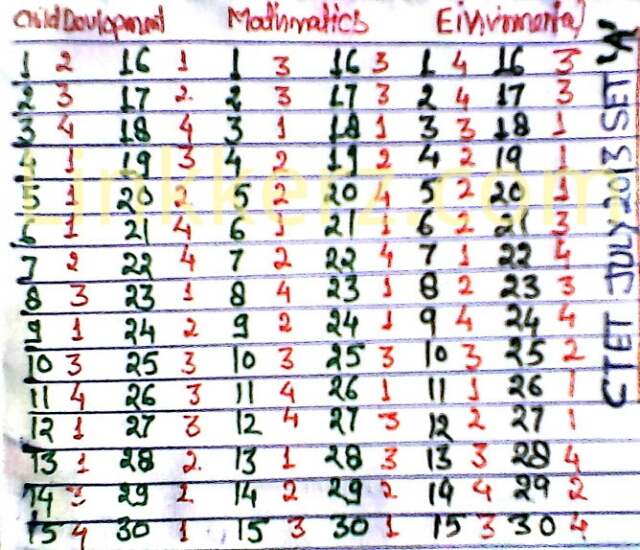 Child Devlopment Mathmatics Eivivirmental
1 2 16 1 1 3 16 3 1 4 16 3
2 3 17 2. 2 3 17 3 2 4 17 3
3 4 18 4 3 1 18 1 3 3 18 1
4 1 19 3 4 2 19 2 4 2 19 1
5 1 20 2 5 2 20 4 5 2 20 1
6 1 21 4 6 1 21 1 6 2 21 3
7 2 22 4 7 2 22 4 7 1 22 4
8 3 23 1 8 4 23 1 8 2 23 3
9 1 24 2 9 2 24 1 9 4 24 4
10 3 25 3 10 3 25 3 10 3 25 2
11 4 26 3 11 4 26 1 11 1 26 1
12 1 27 3 12 4 27 3 12 2 27 1
13 1 28 2. 13 1 28 3 13 3 28 4
14 29 2 14 2 29 2 14 4 29 2
15 4 30 1 15 3 30 1 15 3 30 4
CTET JULY 2013 SET 'A'
Linkkerz.com